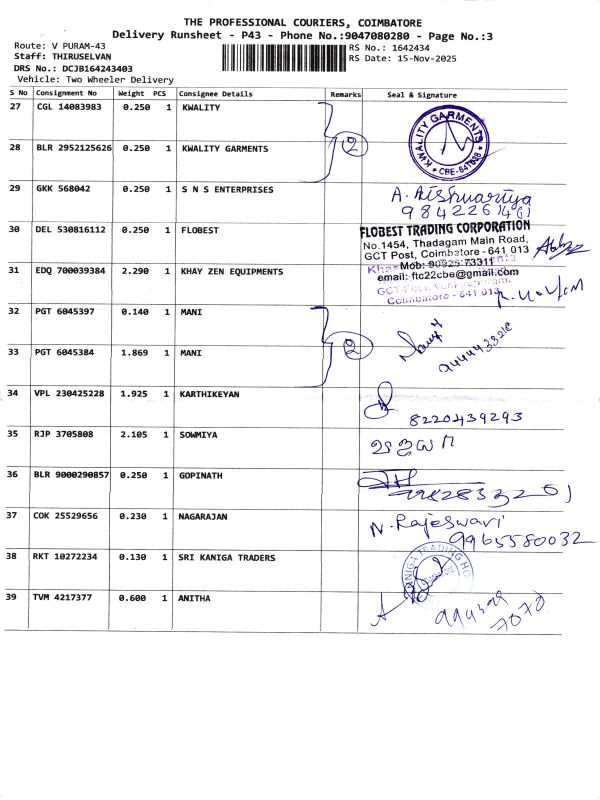 THE PROFESSIONAL COURIERS, COIMBATORE
Delivery Runsheet - P43 - Phone No.:9047080280 - Page No.:3
Route: V PURAM-43
RS No.: 1642434
Staff: THIRUSELVAN
RS Date: 15-Nov-2025
DRS No.: DCJB164243403
Vehicle: Two Wheeler Delivery
S No Consignment No Weight PCS Consignee Details Remarks Seal & Signature
27 CGL 14083983 0.250 1 KWALITY
28 BLR 2952125626 0.250 1 KWALITY GARMENTS
2
KWALITY GARMENTS
29 GKK 568042 0.250 1 S N S ENTERPRISES
A. Aishwariya
9842261461
30 DEL 530816112 0.250 1 FLOBEST
FLOBEST TRADING CORPORATION
No.1454, Thadagam Main Road,
GCT Post, Coimbatore - 641 013
Mob: 90925 73311
email: ftc22cbe@gmail.com
31 EDQ 700039384 2.290 1 KHAY ZEN EQUIPMENTS
Coimbatore - 641 013
32 PGT 6045397 0.140 1 MANI
33 PGT 6045384 1.869 1 MANI
2
34 VPL 230425228 1.925 1 KARTHIKEYAN
8220439293
35 RJP 3705808 2.105 1 SOWMIYA
36 BLR 9000290857 0.250 1 GOPINATH
37 COK 25529656 0.230 1 NAGARAJAN
N. Rajeswari
9965580032
38 RKT 10272234 0.130 1 SRI KANIGA TRADERS
39 TVM 4217377 0.600 1 ANITHA